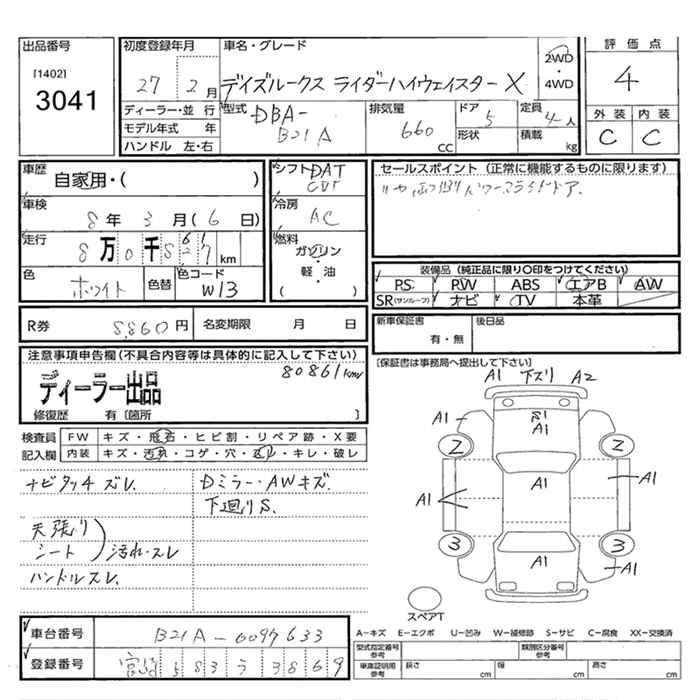 出品番号
[1402]
3041
初度登録年月
27 2月
車名・グレード
デイズルークス ライダーハイウェイスター X
2WD
・
4WD
評価点
4
外装 内装
C C
ディーラー・並行
モデル年式 年
ハンドル 左・右
型式
DBA-
B21A
排気量
660
CC
ドア 5
形状
定員 4人
積載 kg
車歴
自家用・( )
車検
8年 3月(6日)
走行
8万0千 km
色
ホワイト
色替
色コード
W13
シフト DAT
CVT
冷房
AC
燃料
ガソリン
・
軽・油
( )
セールスポイント (正常に機能するものに限ります)
装備品 (純正品に限り〇印をつけてください)
PS PW ABS エアB AW
SR(サンルーフ) ナビ TV 本革
R券 8,860円 名変期限 月 日
新車保証書
有・無
後日品
注意事項申告欄(不具合内容等は具体的に記入して下さい)
80861km
ディーラー出品
修復歴 有〔箇所 〕
[保証書は事務局へ提出して下さい]
検査員
記入欄
FW キズ・飛石・ヒビ割・リペア跡・X要
内装 キズ・汚れ・コゲ・穴・スリ・キレ・破レ
ナビタッチズレ
DミラーAWキズ.
下廻りS.
天張り
シート
汚れ・スレ
ハンドルスレ.
A1 下ズリ A2
A1
A1
2 2
A1
A1
A1
3 3
A1
A1
スペアT
車台番号 B21A-6097633
登録番号 宮崎 583 う 3869
A−キズ E−エクボ U−凹み W−補修跡 S−サビ C−腐食 XX−交換済
型式指定番号
参考
類別区分番号
参考
車庫証明用
参考
長さ cm 幅 cm 高さ cm